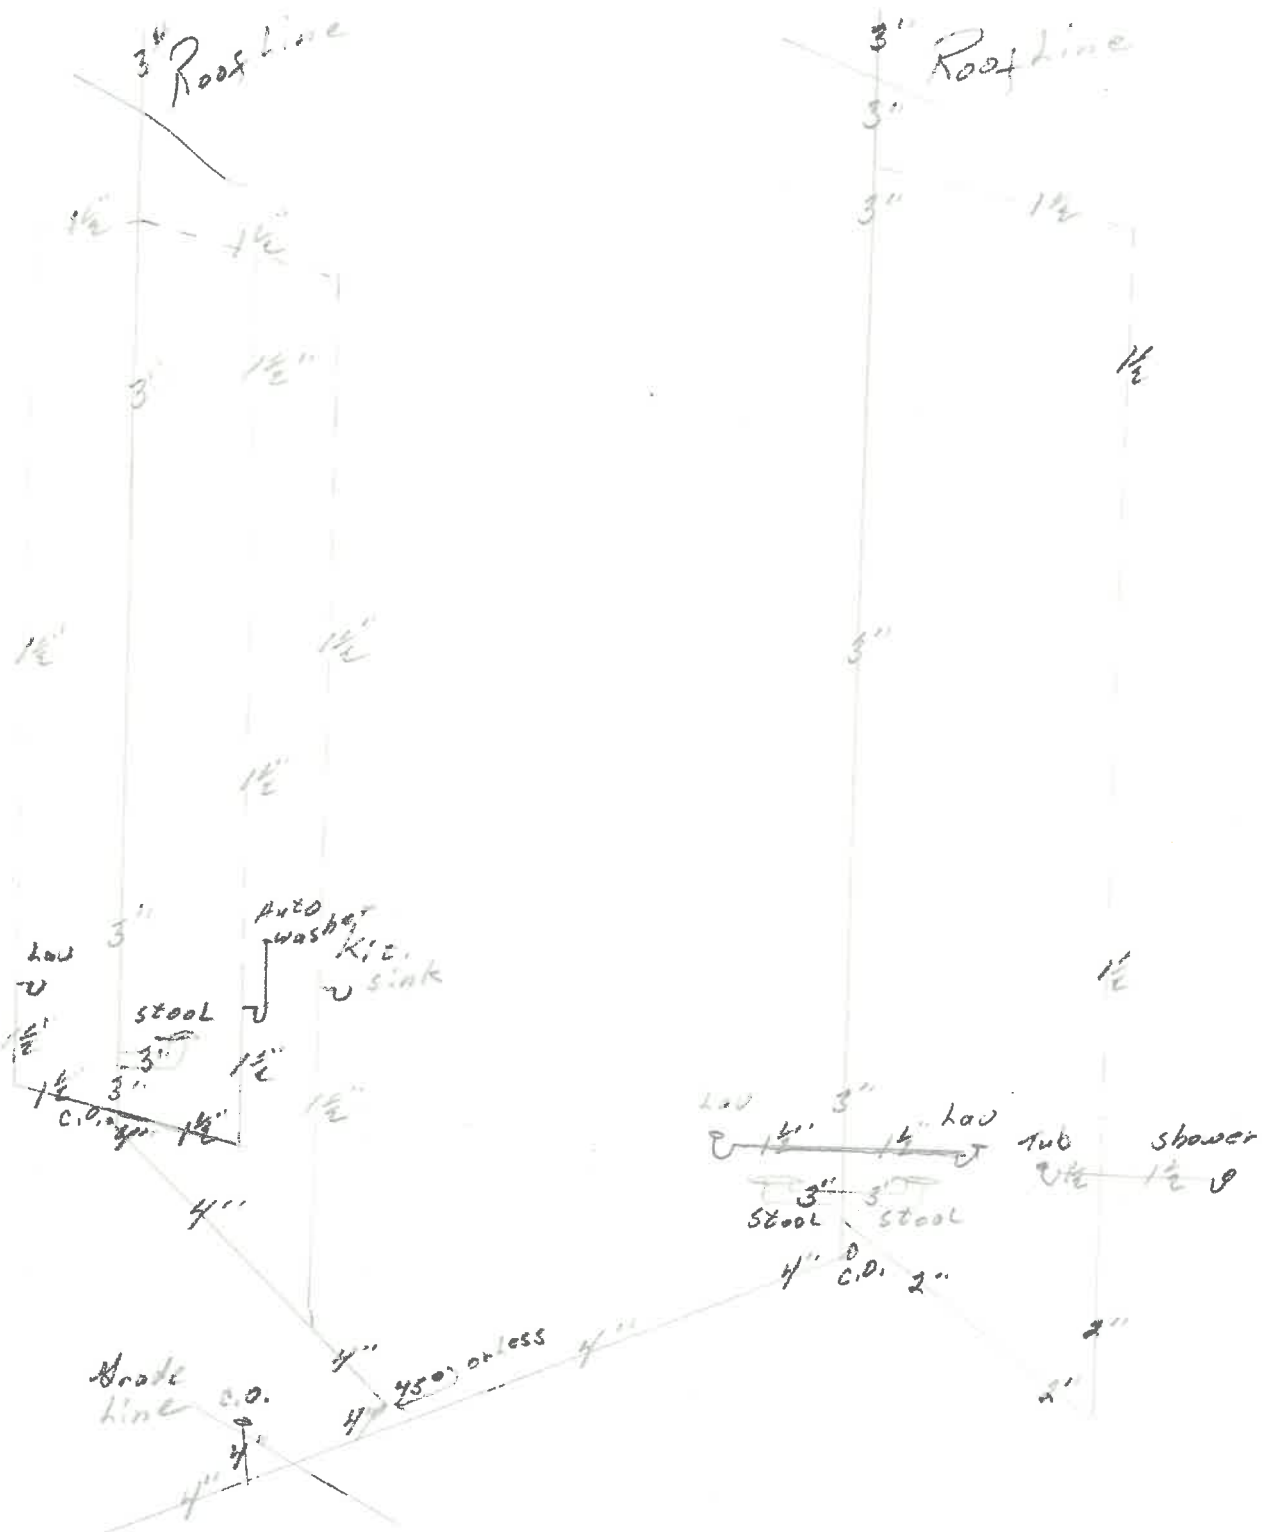 3" Roof Line
3" Roof Line
3"
1½" 1½"
3" 1½
1½"
3'
1½
1½" 1½"
3"
1½"
3"
Auto
washer
Kit.
sink
Lav
stool
1½
1½" 3" 1½"
1½ 3"
C.O. 4" 1½"
1½"
Lav 3" Lav
1½" 1½" Tub shower
1½ 1½
3" 3"
stool stool
4"
4" C.O. 2"
2"
4" 45° or Less 4"
2"
Grade
Line
C.O.
4"
4"
4"